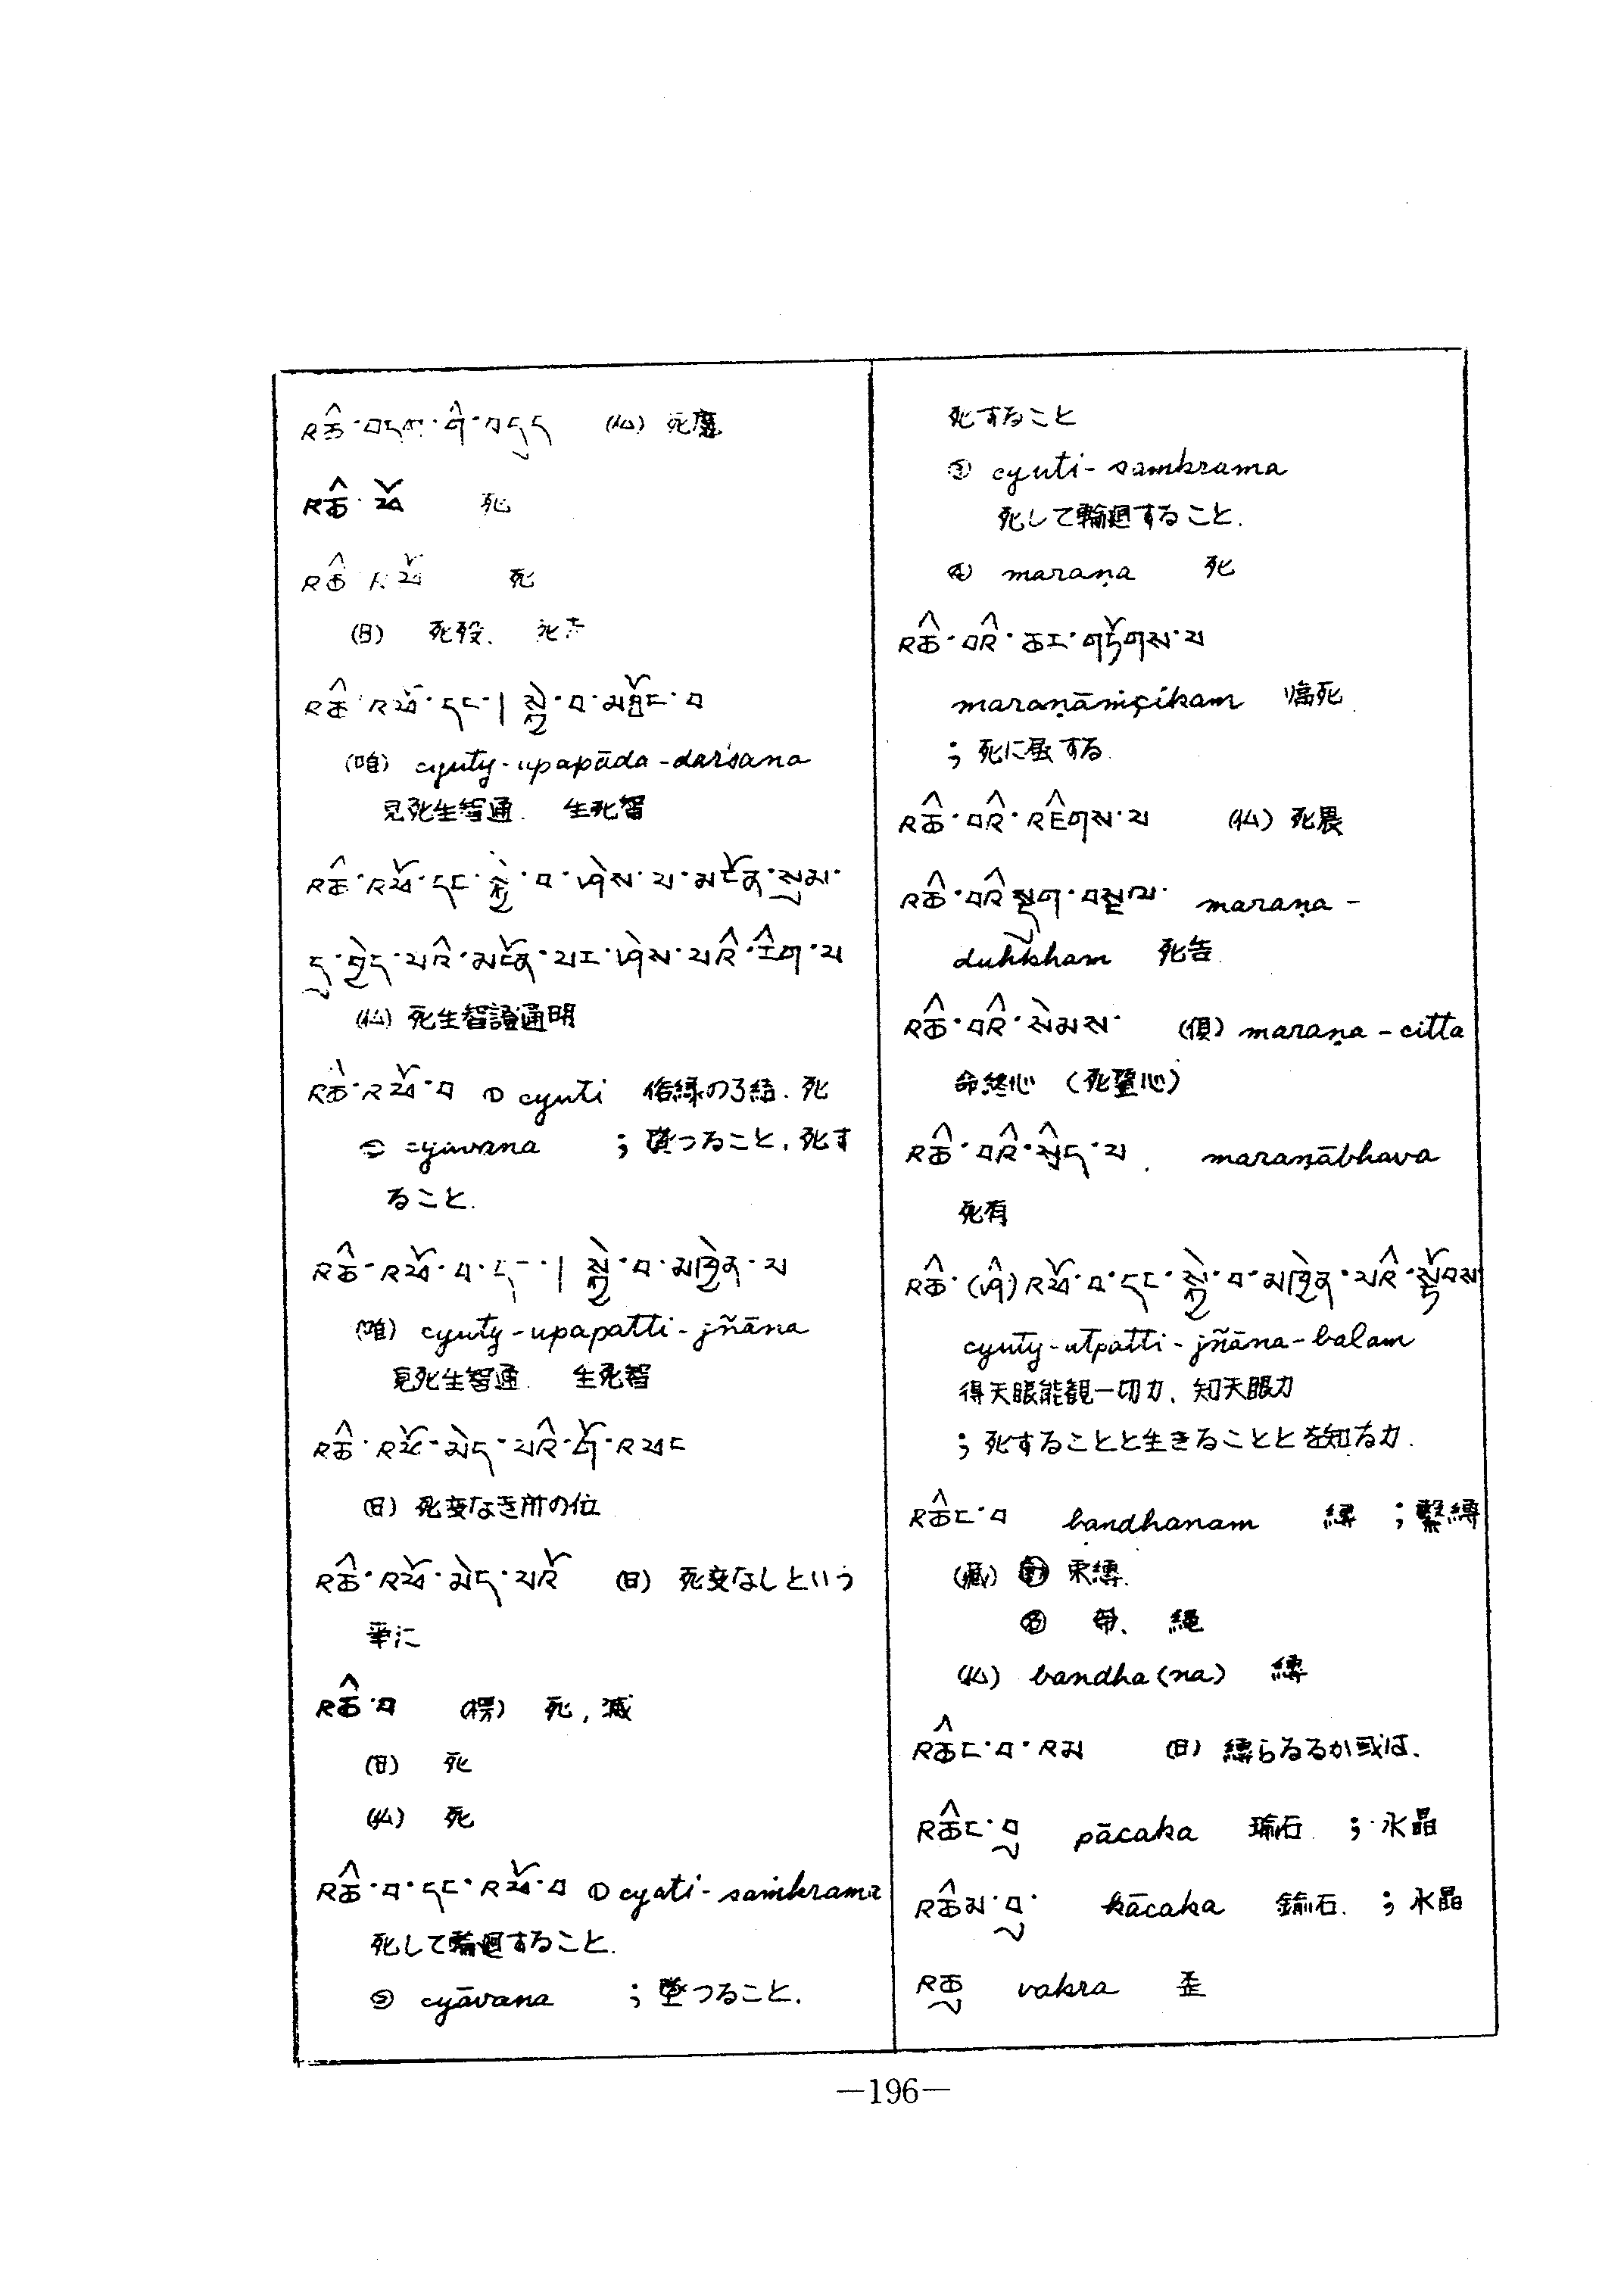 འཆི་བདག་གི་བདུད (仏) 死魔
འཆི་ཕོ 死
འཆི་འཕོ 死
(日) 死歿、
འཆི་འཕོ་དང་། སྐྱེ་བ་མཐོང་བ
(唯) cyuty-upapāda-darśana
見死生智通. 生死智
འཆི་འཕོ་དང་སྐྱེ་བ་ཤེས་པ་མངོན་སུམ་
དུ་བྱེད་པའི་མངོན་པར་ཤེས་པའི་རིག་པ
(仏) 死生智證通明
འཆི་འཕོ་བ ① cyuti 俗縁の了結. 死
② cyavana ; 墜つること, 死す
ること.
འཆི་འཕོ་བ་དང་། སྐྱེ་བ་མཁྱེན་པ
(唯) cyuty-upapatti-jñāna
見死生智通. 生死智
འཆི་འཕོ་མེད་པའི་གོ་འཕང
(日) 死変なき所の位
འཆི་འཕོ་མེད་པའོ (日) 死変なしという
事に
འཆི་བ (楞) 死, 滅
(日) 死
(仏) 死
འཆི་བ་དང་འཕོ་བ ① cyati-saṁkrama
死して輪廻すること.
② cyāvana ; 墜つること.
死すること
③ cyuti-samkrama
死して輪廻すること.
④ maraṇa 死
འཆི་བའི་ཆར་གཏོགས་པ
maraṇāṁçikam 臨死
; 死に属する.
འཆི་བའི་འཇིགས་པ (仏) 死畏
འཆི་བའི་སྡུག་བསྔལ་ maraṇa-
duḥkham 死苦.
འཆི་བའི་སེམས་ (倶) maraṇa-citta
命終心 (死堕心)
འཆི་བའི་སྲིད་པ. maraṇābhava
死有
འཆི་(ཤི)འཕོ་བ་དང་སྐྱེ་བ་མཁྱེན་པའི་སྟོབས
cyuty-utpatti-jñāna-balam
得天眼能観一切力、知天眼力
; 死することと生きることとを知る力.
འཆིང་བ bandhanam 縛 ; 繫縛
(蔵) 束縛.
帶、繩
(仏) bandha(na) 縛
འཆིང་བ་འམ (日) 縛らるるか或は.
འཆིང་བུ pācaka 瑜石. ; 水晶
འཆིམ་བུ་ kācaka 鍮石. ; 水晶
འཆུ vakra 歪
—196—